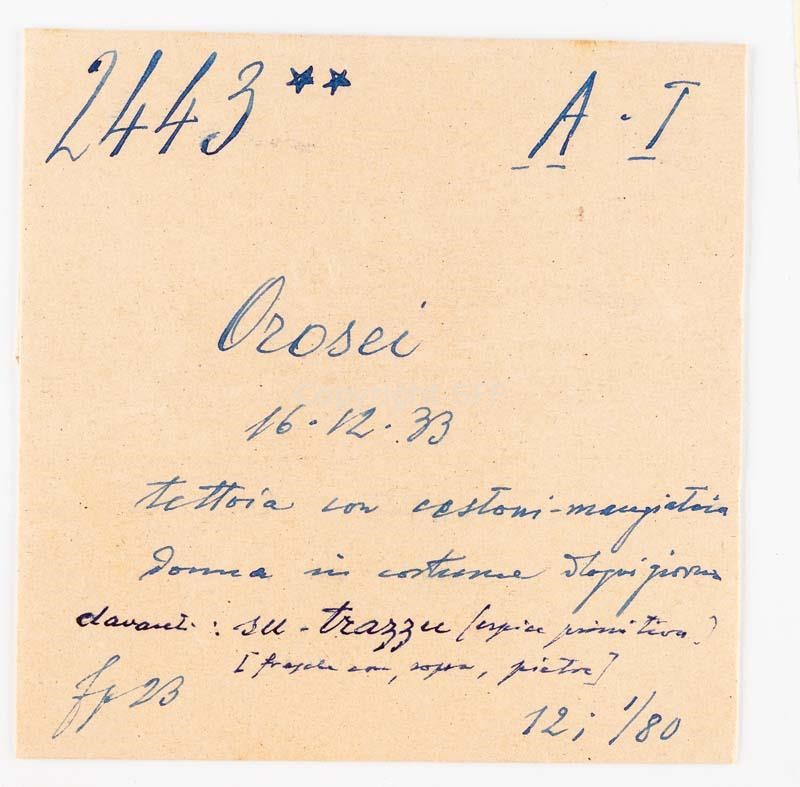 2443** A·I
Orosei
16·12·33
tettoia con cestoni-mangiatoia
donna in costume d'ogni giorno
davanti: su-trazzu (erpice primitivo)
[con, sopra, pietre]
12; 1/80